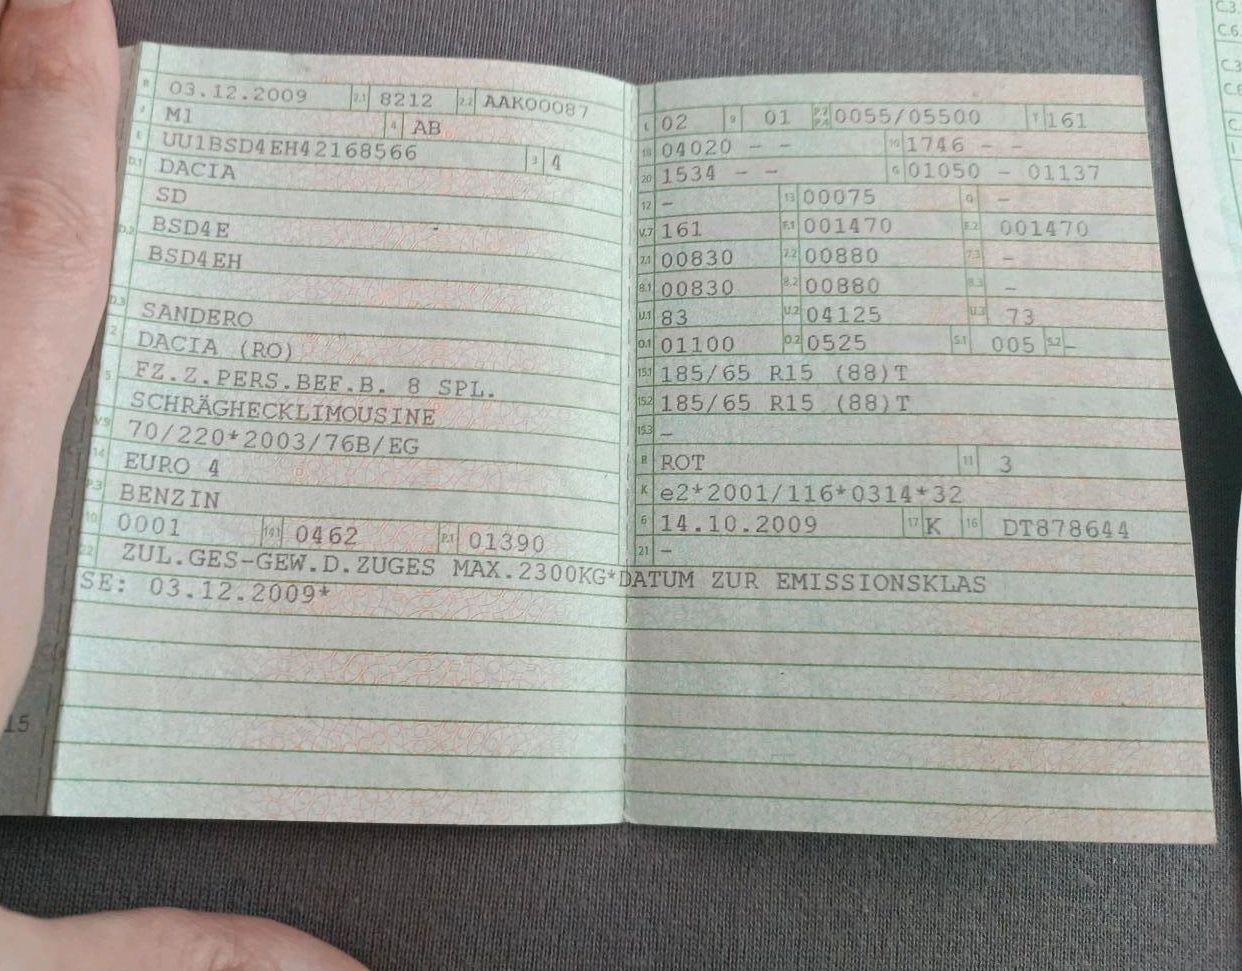 B 03.12.2009 2.1 8212 2.2 AAK00087
J M1 4 AB
E UU1BSD4EH42168566 3 4
D.1 DACIA
SD
D.2 BSD4E
BSD4EH
D.3 SANDERO
2 DACIA (RO)
5 FZ.Z.PERS.BEF.B. 8 SPL.
SCHRÄGHECKLIMOUSINE
V.9 70/220*2003/76B/EG
14 EURO 4
P.3 BENZIN
10 0001 14.1 0462 P.1 01390
22 ZUL.GES-GEW.D.ZUGES MAX.2300KG*DATUM ZUR EMISSIONSKLAS
SE: 03.12.2009*
L 02 9 01 P.2 P.4 0055/05500 T 161
18 04020 - - 19 1746 - -
20 1534 - - G 01050 - 01137
12 - 13 00075 Q -
V.7 161 F.1 001470 F.2 001470
7.1 00830 7.2 00880 7.3 -
8.1 00830 8.2 00880 8.3 -
U.1 83 U.2 04125 U.3 73
O.1 01100 O.2 0525 S.1 005 S.2 -
15.1 185/65 R15 (88)T
15.2 185/65 R15 (88)T
15.3 -
R ROT 11 3
K e2*2001/116*0314*32
6 14.10.2009 17 K 16 DT878644
21 -
15
C.3.
C.6.
C.3
C.6
C.
I